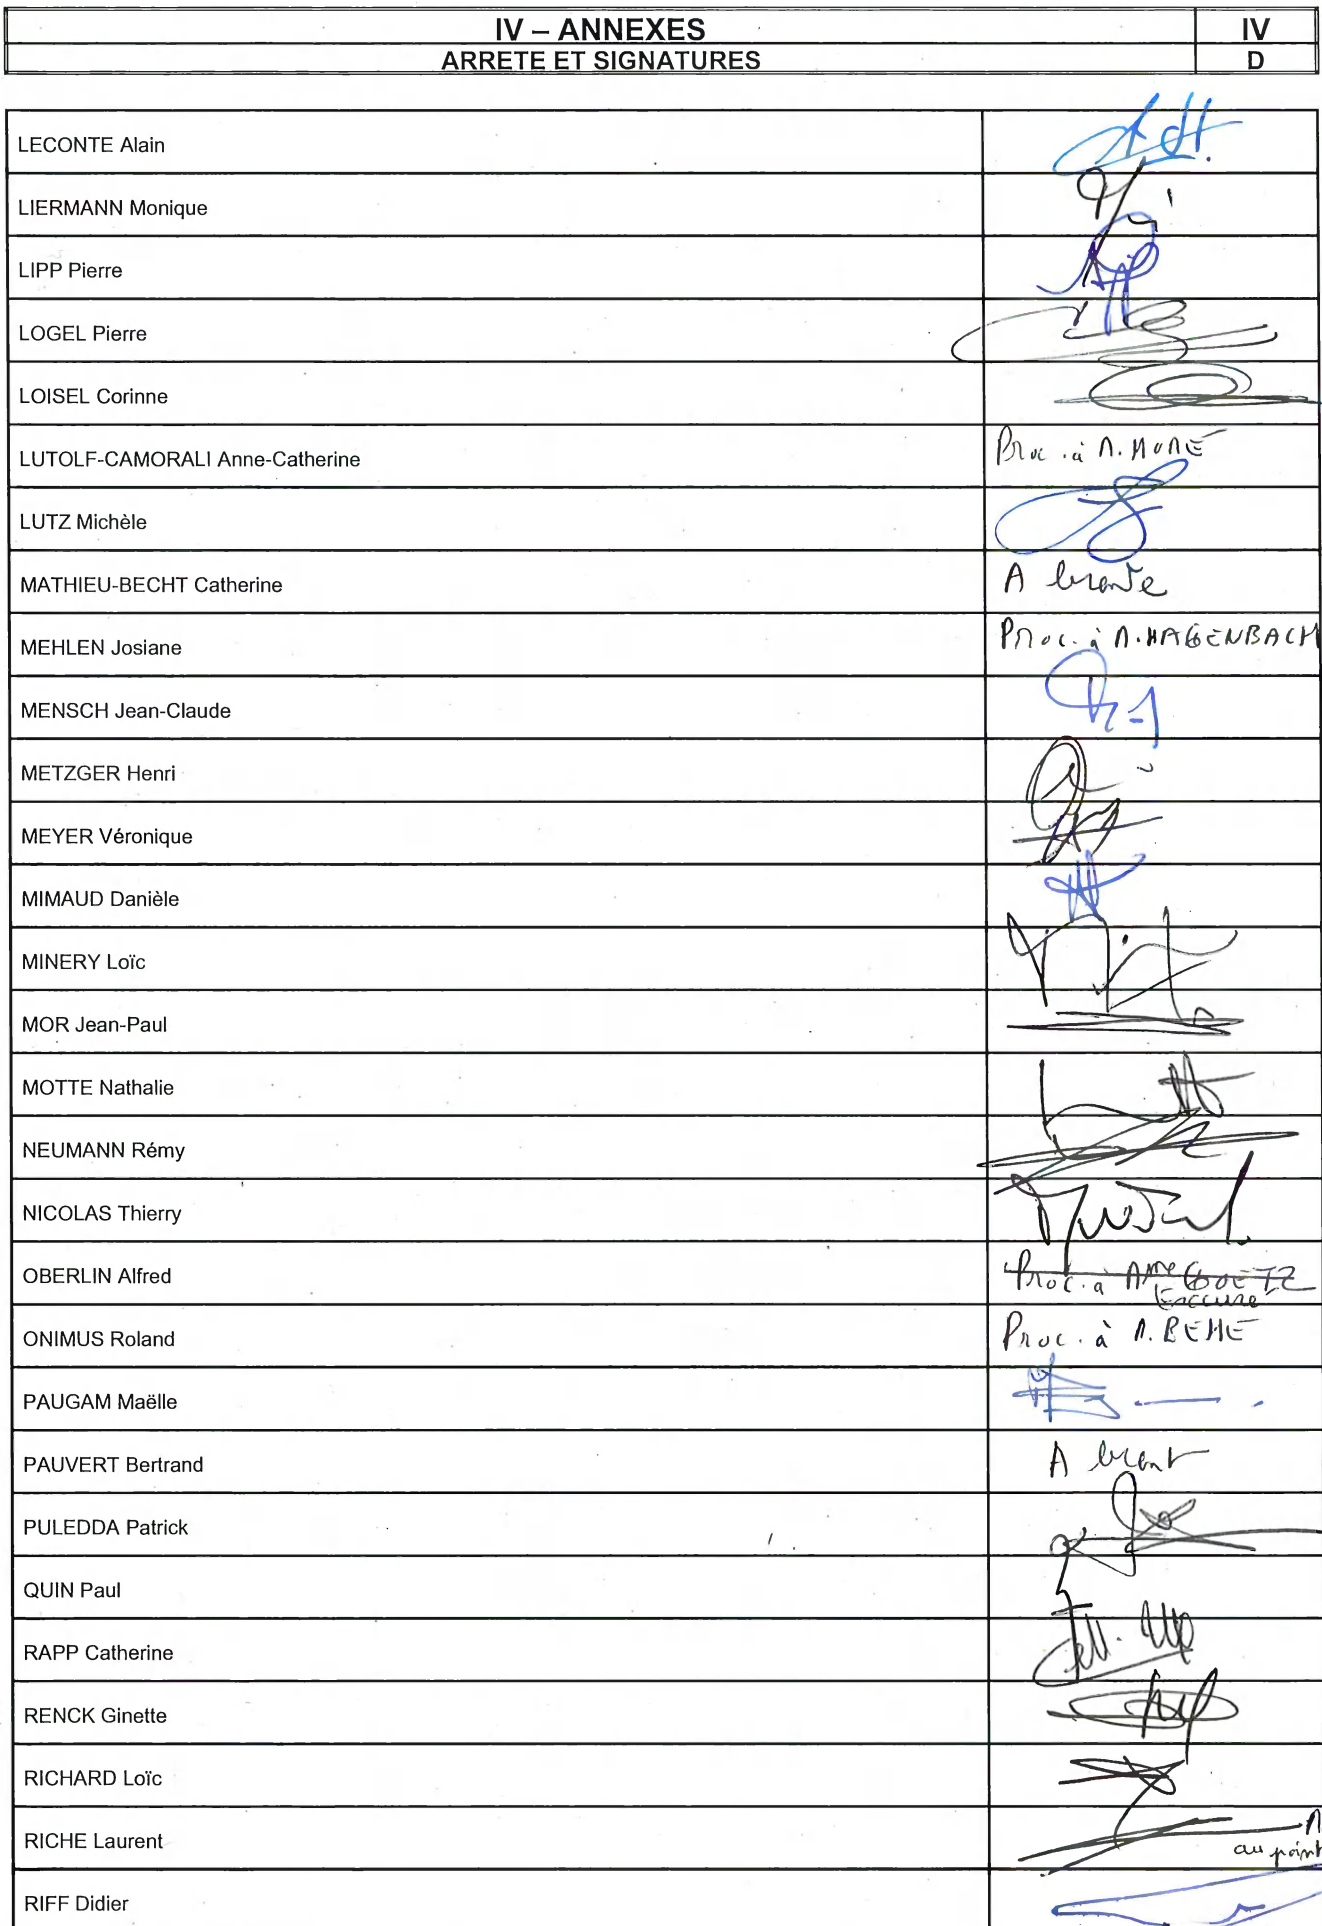 IV – ANNEXES
IV
ARRETE ET SIGNATURES
D
LECONTE Alain
LIERMANN Monique
LIPP Pierre
LOGEL Pierre
LOISEL Corinne
LUTOLF-CAMORALI Anne-Catherine
Proc. à
LUTZ Michèle
MATHIEU-BECHT Catherine
MEHLEN Josiane
Proc. à M. HAGENBACH
MENSCH Jean-Claude
METZGER Henri
MEYER Véronique
MIMAUD Danièle
MINERY Loïc
MOR Jean-Paul
MOTTE Nathalie
NEUMANN Rémy
NICOLAS Thierry
OBERLIN Alfred
Proc. à Mme GOETZ
ONIMUS Roland
Proc. à M. BEHE
PAUGAM Maëlle
PAUVERT Bertrand
PULEDDA Patrick
QUIN Paul
RAPP Catherine
RENCK Ginette
RICHARD Loïc
RICHE Laurent
au point
RIFF Didier